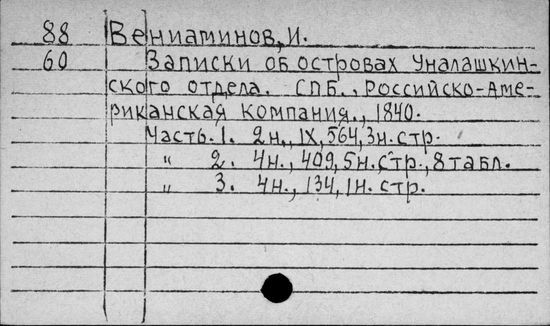 88 Вениаминов, И.
60 Записки об островах Уналашкин-
ского отдела. СПБ., Российско-Аме-
риканская компания., 1840.
Часть. 1. 2н., IX, 564, 3н. стр.
" 2. 4н., 409, 5н. стр., 8 табл.
" 3. 4н., 134, 1н. стр.